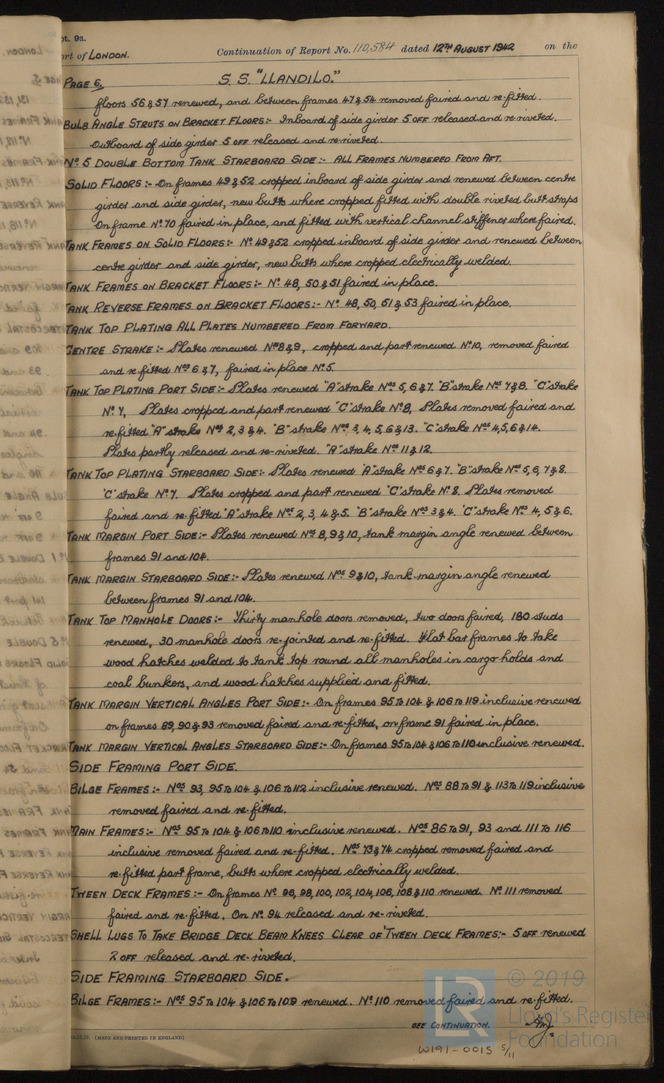 pt. 9a.
ort of LONDON. Continuation of Report No. 110,584 dated 12TH AUGUST 1942 on the
PAGE 6. S. S. "LLANDILO."
floors 56 & 57 renewed, and between frames 47 & 54 removed faired and re-fitted.
BULB ANGLE STRUTS ON BRACKET FLOORS:- Inboard of side girder 5 OFF released and re-riveted.
Outboard of side girder 5 OFF released and re-riveted.
No 5 DOUBLE BOTTOM TANK STARBOARD SIDE:- ALL FRAMES NUMBERED FROM AFT.
SOLID FLOORS:- On frames 49 & 52 cropped inboard of side girder and renewed between centre
girder and side girder, new butts where cropped fitted with double riveted butt straps
On frame No. 70 faired in place, and fitted with vertical channel stiffener where faired.
TANK FRAMES ON SOLID FLOORS:- No 49 & 52 cropped inboard of side girder and renewed between
centre girder and side girder, new butts where cropped electrically welded.
TANK FRAMES ON BRACKET FLOORS:- No. 48, 50 & 51 faired in place.
TANK REVERSE FRAMES ON BRACKET FLOORS:- No. 48, 50, 51 & 53 faired in place.
TANK TOP PLATING ALL PLATES NUMBERED FROM FORWARD.
CENTRE STRAKE:- Plates renewed Nos 8 & 9, cropped and part renewed No 10, removed faired
and re-fitted Nos 6 & 7, faired in place No 5.
TANK TOP PLATING PORT SIDE:- Plates renewed "A" strake Nos 5, 6 & 7. "B" strake Nos 7 & 8. "C" strake
No. 7, Plates cropped and part renewed "C" strake No 8, Plates removed faired and
re-fitted "A" strake Nos 2, 3 & 4. "B" strake Nos 3, 4, 5, 6 & 13. "C" strake Nos 4, 5, 6 & 14.
Plates partly released and re-riveted. "A" strake Nos 11 & 12.
TANK TOP PLATING STARBOARD SIDE:- Plates renewed "A" strake Nos 6 & 7. "B" strake Nos 5, 6, 7 & 8.
"C" strake No 7. Plates cropped and part renewed "C" strake No 8. Plates removed
faired and re-fitted "A" strake Nos 2, 3, 4 & 5. "B" strake Nos 3 & 4. "C" strake Nos 4, 5 & 6.
TANK MARGIN PORT SIDE:- Plates renewed Nos 8, 9 & 10, tank margin angle renewed between
frames 91 and 104.
TANK MARGIN STARBOARD SIDE:- Plates renewed Nos 9 & 10, tank margin angle renewed
between frames 91 and 104.
TANK TOP MANHOLE DOORS:- Thirty manhole doors removed, two doors faired, 180 studs
renewed, 30 manhole doors re-jointed and re-fitted. Flat bar frames to take
wood hatches welded to tank top round all manholes in cargo holds and
coal bunkers, and wood hatches supplied and fitted.
TANK MARGIN VERTICAL ANGLES PORT SIDE:- On frames 95 TO 104 & 106 TO 119 inclusive renewed
on frames 89, 90 & 93 removed faired and re-fitted, on frame 91 faired in place.
TANK MARGIN VERTICAL ANGLES STARBOARD SIDE:- On frames 95 to 104 & 106 TO 110 inclusive renewed.
SIDE FRAMING PORT SIDE.
BILGE FRAMES:- Nos 93, 95 TO 104 & 106 TO 112 inclusive renewed. Nos 88 TO 91 & 113 TO 119 inclusive
removed faired and re-fitted.
MAIN FRAMES:- Nos 95 TO 104 & 106 TO 110 inclusive renewed. Nos 86 TO 91, 93 and 111 TO 116
inclusive removed faired and re-fitted. Nos 73 & 74 cropped removed faired and
re-fitted part frame, butts where cropped electrically welded.
TWEEN DECK FRAMES:- On frames No 96, 98, 100, 102, 104, 106, 108 & 110 renewed. No 111 removed
faired and re-fitted, On No. 94 released and re-riveted.
SHELL LUGS TO TAKE BRIDGE DECK BEAM KNEES CLEAR OF 'TWEEN DECK FRAMES:- 5 OFF renewed
2 OFF released and re-riveted.
SIDE FRAMING STARBOARD SIDE.
BILGE FRAMES:- Nos 95 TO 104 & 106 TO 109 renewed. No 110 removed faired and re-fitted.
SEE CONTINUATION.
[MADE AND PRINTED IN ENGLAND]
W191-0015 5/11
LR
© 2019
Lloyd's Register
Foundation